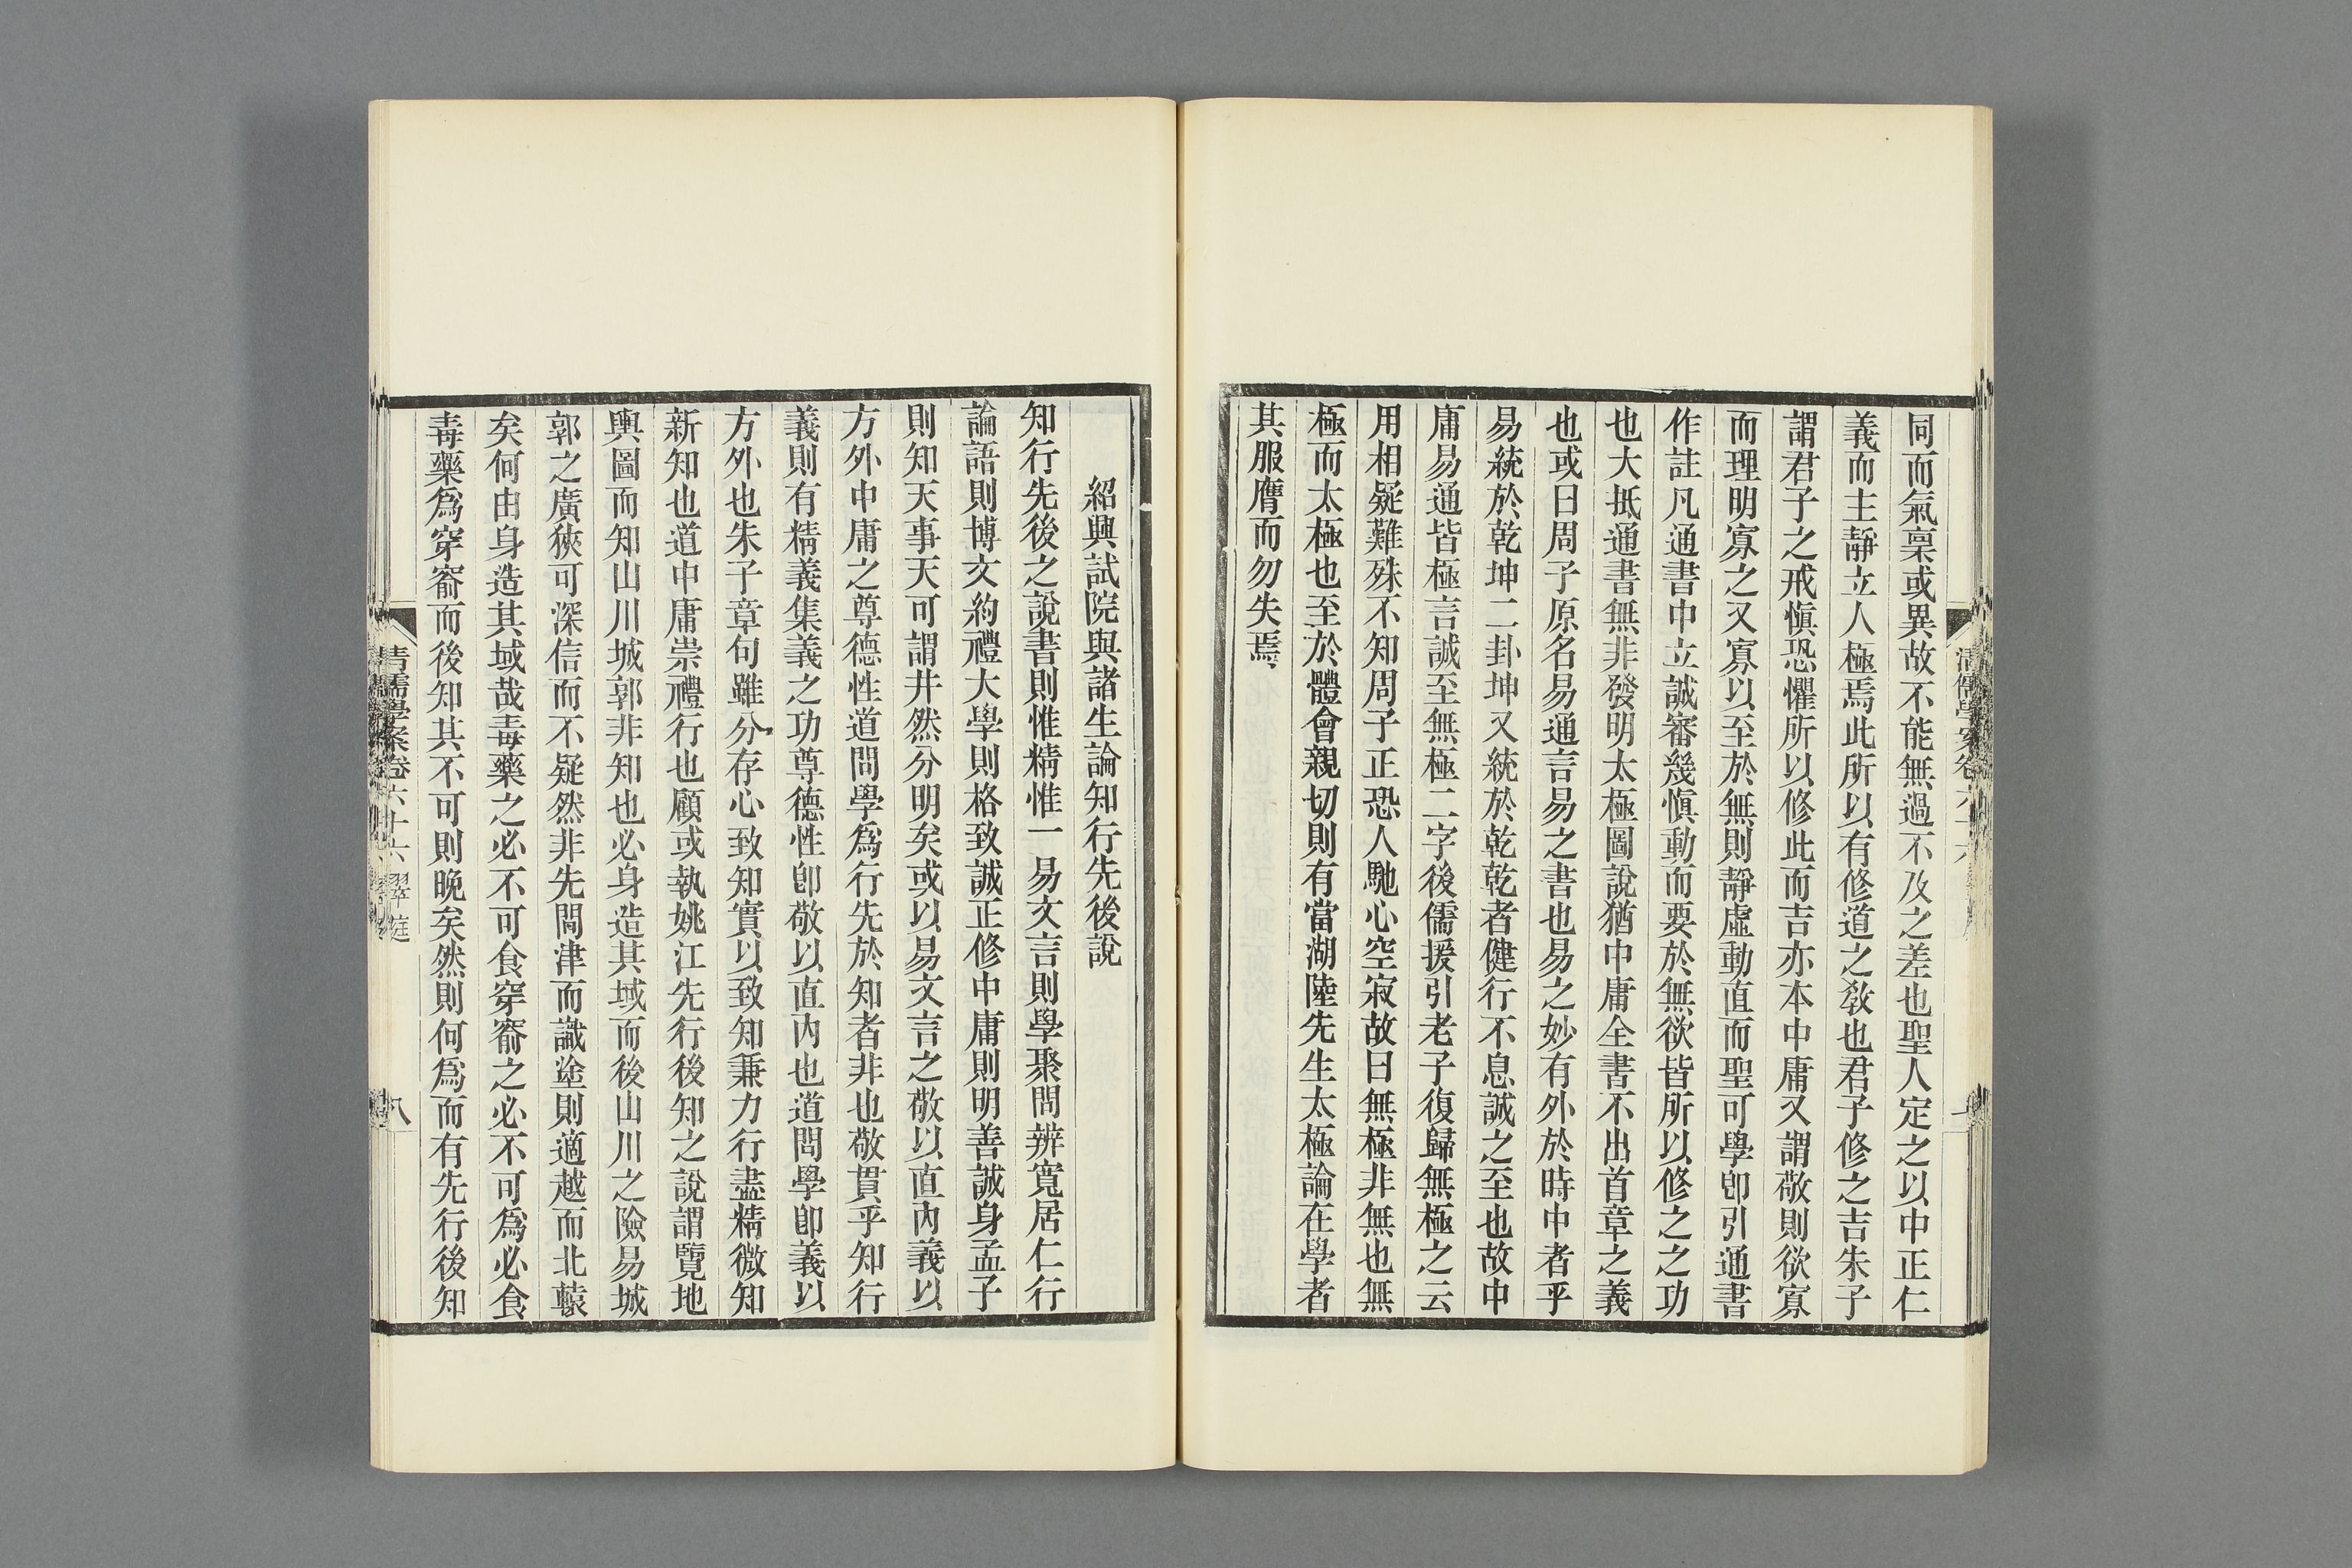 同而氣稟或異故不能無過不及之差也聖人定之以中正仁
義而主靜立人極焉此所以有修道之教也君子修之吉朱子
謂君子之戒慎恐懼所以修此而吉亦本中庸又謂敬則欲寡
而理明寡之又寡以至於無則靜虛動直而聖可學卽引通書
作註凡通書中立誠審幾慎動而要於無欲皆所以修之之功
也大抵通書無非發明太極圖說猶中庸全書不出首章之義
也或曰周子原名易通言易之書也易之妙有外於時中者乎
易統於乾坤二卦坤又統於乾乾者健行不息誠之至也故中
庸易通皆極言誠至無極二字後儒援引老子復歸無極之云
用相疑難殊不知周子正恐人馳心空寂故曰無極非無也無
極而太極也至於體會親切則有當湖陸先生太極論在學者
其服膺而勿失焉
紹興試院與諸生論知行先後說
知行先後之說書則惟精惟一易文言則學聚問辨寬居仁行
論語則博文約禮大學則格致誠正修中庸則明善誠身孟子
則知天事天可謂井然分明矣或以易文言之敬以直內義以
方外中庸之尊德性道問學爲行先於知者非也敬貫乎知行
義則有精義集義之功尊德性卽敬以直內也道問學卽義以
方外也朱子章句雖分存心致知實以致知兼力行盡精微知
新知也道中庸崇禮行也顧或執姚江先行後知之說謂覽地
輿圖而知山川城郭非知也必身造其域而後山川之險易城
郭之廣狹可深信而不疑然非先問津而識塗則適越而北轅
矣何由身造其域哉毒藥之必不可食穿窬之必不可爲必食
毒藥爲穿窬而後知其不可則晚矣然則何爲而有先行後知
清儒學案卷六十六 翠庭
八